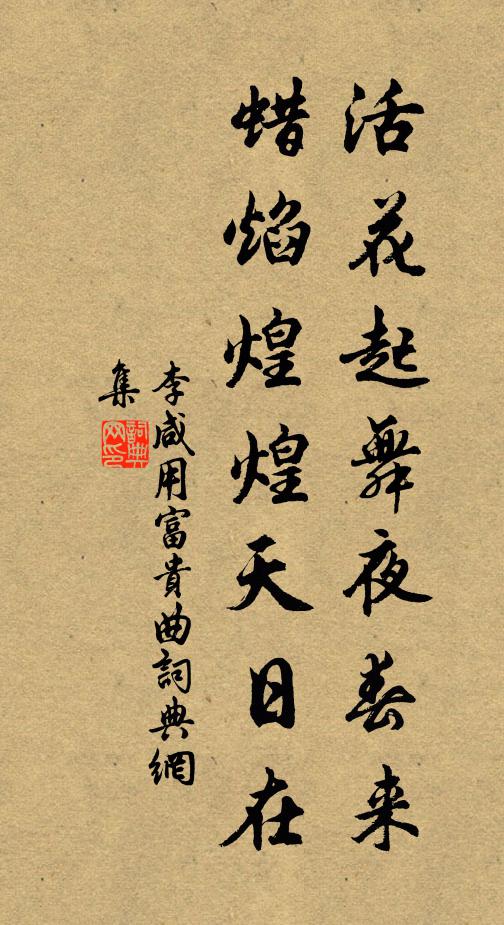 活花起舞夜春来
蜡焰煌煌天日在
李咸用富貴曲詞典網
集
詞典
网印